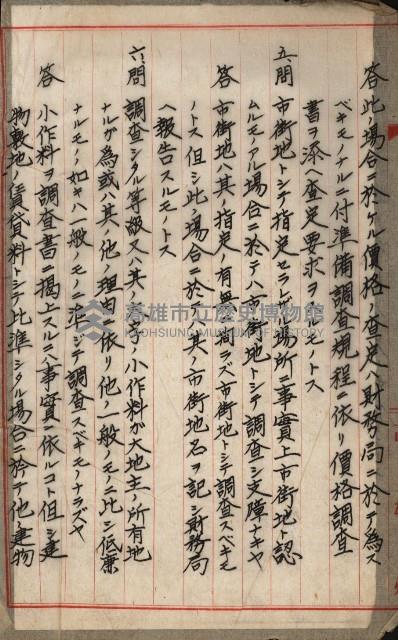 答 此ノ場合ニ於ケル價格ノ査定ハ財務局ニ於テ為ス
ベキモノナルニ付準備調査規程ニ依リ價格調査
書ヲ添ヘ査定要求ヲ為スモノトス
五、問 市街地トシテ指定セラレザル場所ニ事實上市街地ト認
ムルモノアル場合ニ於テハ市街地トシテ調査シ支障ナキヤ
答 市街地ハ其ノ指定ノ有無ヲ問ハズ市街地トシテ調査スベキモ
ノトス但シ此ノ場合ニ於テハ其ノ市街地名ヲ記シ財務局
ヘ報告スルモノトス
六、問 調査シタル等級又ハ其ノ 小作料ガ大地主ノ所有地
ナルガ為或ハ其ノ他ノ理由ニ依リ他ノ一般ノモノニ比シ低廉
ナルモノノ如キハ一般ノモノニ準ジテ調査スベキモノナラズヤ
答 小作料ヲ調査書ニ揭上スルハ事實ニ依ルコト但シ建
物敷地ノ賃貸料トシテ比準シタル場合ニ於テ他ノ建物
高雄市立歷史博物館
KAOHSIUNG MUSEUM OF HISTORY